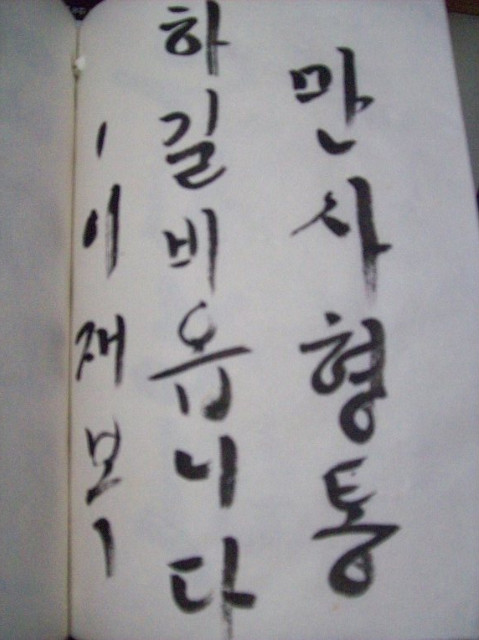 만사형통
하길비옵니다
- 이재보 -